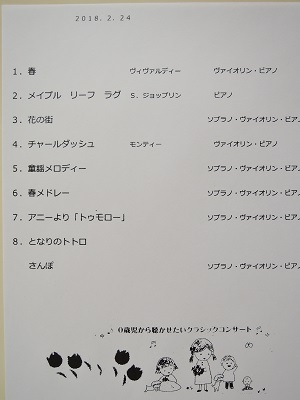 2018.2.24
1．春 ヴィヴァルディー ヴァイオリン・ピアノ
2．メイプル リーフ ラグ S．ジョップリン ピアノ
3．花の街 ソプラノ・ヴァイオリン・ピアノ
4．チャールダッシュ モンティー ヴァイオリン・ピアノ
5．童謡メロディー ソプラノ・ヴァイオリン・ピア
6．春メドレー ソプラノ・ヴァイオリン・ピア
7．アニーより「トゥモロー」 ソプラノ・ヴァイオリン・ピア
8．となりのトトロ
さんぽ ソプラノ・ヴァイオリン・ピア
0歳児から聴かせたいクラシックコンサート